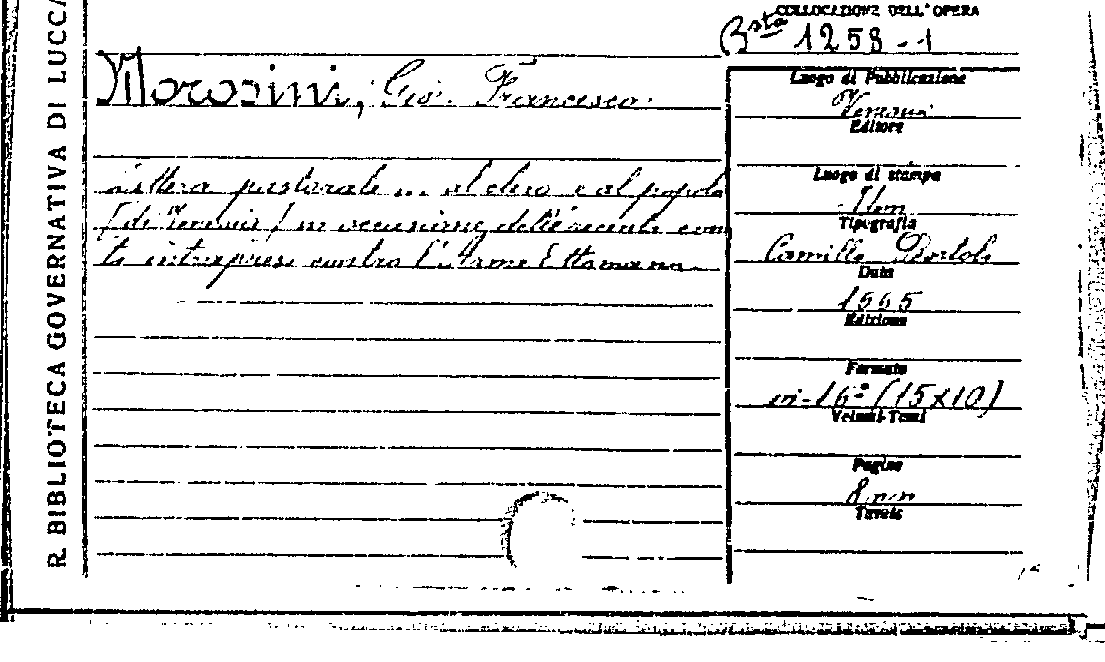 R. BIBLIOTECA GOVERNATIVA DI LUCCA
COLLOCAZIONE DELL'OPERA
Bsta 1258-1
Morosini, Gio. Francesco.
Lettera pastorale ... al clero e al popolo
(di) in occasione dell'
intrapresi contro l'Arme Ottomana.
Luogo di Pubblicazione
Editore
Luogo di stampa
Idem
Tipografia
Camillo Bortoli
Data
Edizione
Formato
in-16° (15x10)
Volumi-Tomi
Pagine
8 nn
Tavole